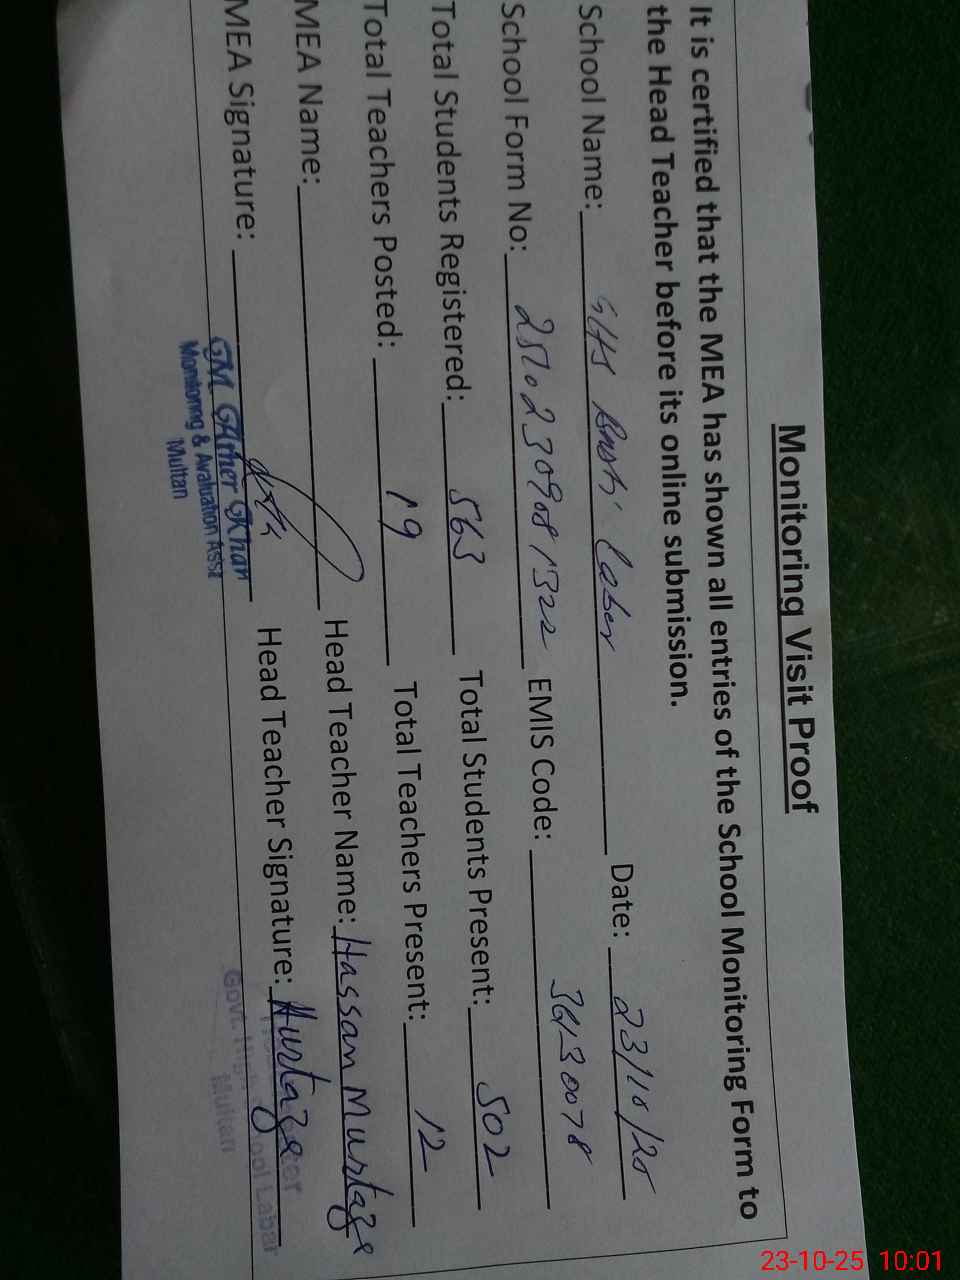 Monitoring Visit Proof
It is certified that the MEA has shown all entries of the School Monitoring Form to
the Head Teacher before its online submission.
School Name: GHS Labar Date: 23/10/25
School Form No: EMIS Code:
Total Students Registered: 563 Total Students Present: 502
Total Teachers Posted: 19 Total Teachers Present: 12
MEA Name: Head Teacher Name: Hassan Murtaza
MEA Signature: Head Teacher Signature: Murtaza
GM GAther GKhan
Monitoring & Avaluation Asst
Multan
Govt. High School Labar
Multan
23-10-25 10:01